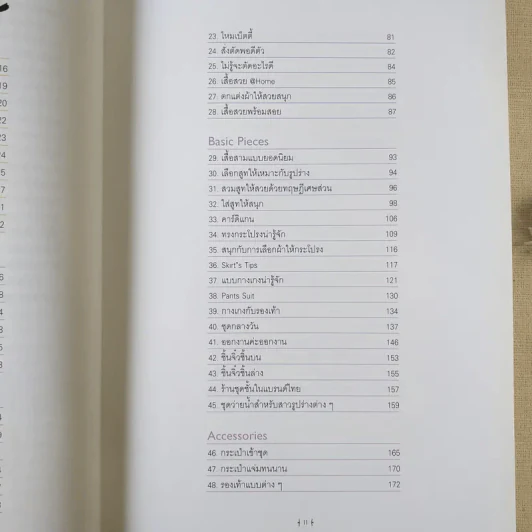 16
19
20
22
23
24
25
23. ไหมเบ็ดตี้ 81
24. สั่งตัดพอดีตัว 82
25. ไม่รู้จะตัดอะไรดี 84
26. เสื้อสวย @Home 85
27. ตกแต่งผ้าให้สวยสนุก 86
28. เสื้อสวยพร้อมสอย 87
Basic Pieces
29. เสื้อสามแบบยอดนิยม 93
30. เลือกสูทให้เหมาะกับรูปร่าง 94
31. สวมสูทให้สวยด้วยทฤษฎีเศษส่วน 96
32. ใส่สูทให้สนุก 98
33. คาร์ดิแกน 106
34. ทรงกระโปรงน่ารู้จัก 109
35. สนุกกับการเลือกผ้าให้กระโปรง 116
36. Skirt's Tips 117
37. แบบกางเกงน่ารู้จัก 121
38. Pants Suit 130
39. กางเกงกับรองเท้า 134
40. ชุดกลางวัน 137
41. ออกงานค่ะออกงาน 146
42. ชิ้นจิ๋วชิ้นบน 153
43. ชิ้นจิ๋วชิ้นล่าง 155
44. ร้านชุดชั้นในแบรนด์ไทย 157
45. ชุดว่ายน้ำสำหรับสาวรูปร่างต่าง ๆ 159
Accessories
46. กระเป๋าเข้าชุด 165
47. กระเป๋าแจ่มทนนาน 170
48. รองเท้าแบบต่าง ๆ 172
11